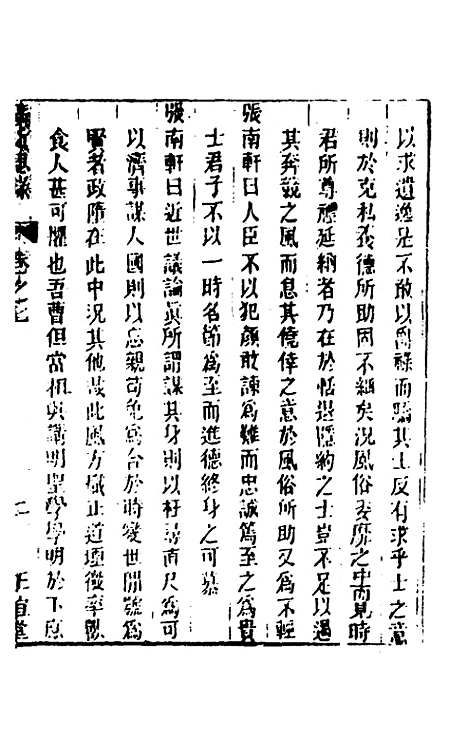 以求遺逸是不敢以爵祿而驕其士反有求乎士之意
則於克私養德所助固不細矣況風俗委靡之中而見時
君所尊禮延納者乃在於恬退隱約之士豈不足以遏
其奔競之風而息其僥倖之意於風俗所助又為不輕
張南軒曰人臣不以犯顏敢諫為難而忠誠篤至之為貴
士君子不以一時名節為至而進德終身之可慕
張南軒曰近世議論真所謂謀其身則以枉尋直尺為可
以濟事謀人國則以忘親苟免為合於時變世間號為
賢者政墮在此中況其他哉此風方熾正道壅微率獸
食人甚可懼也吾曹但當相與講明聖學學明於下庶
卷之七
二
正誼堂